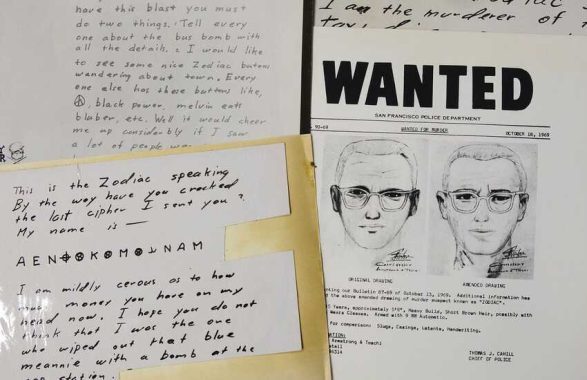 have this blast you must
do two things. Tell every
one about the bus bomb with
all the details. 2 I would like
to see some nice Zodiac butons
wandering about town. Every
one else has these buttons like,
black power, melvin eats
blaber, etc. Well it would cheer
me up considerbly if I saw
a lot of people
I am the murderer of
This is the Zodiac speaking
By the way have you cracked
the last cipher I sent you?
My name is —
A E N ⊕ K M N A M
I am mildly cerous as to how
much money you have on my
head now. I hope you do not
think that I was the one
who wiped out that blue
meannie with a bomb at the
cop station.
WANTED
SAN FRANCISCO POLICE DEPARTMENT
90-69 WANTED FOR MURDER OCTOBER 18, 1969
ORIGINAL DRAWING AMENDED DRAWING
our Bulletin 87-69 of October 13, 1969. Additional information has
the above amended drawing of murder suspect known as "ZODIAC".
Years, approximately 5'8", Heavy Build, Short Brown Hair, possibly with
Wears Glasses. Armed with 9 MM Automatic.
for comparison: Slugs, Casings, Latents, Handwriting.
Armstrong & Toschi
THOMAS J. CAHILL
CHIEF OF POLICE